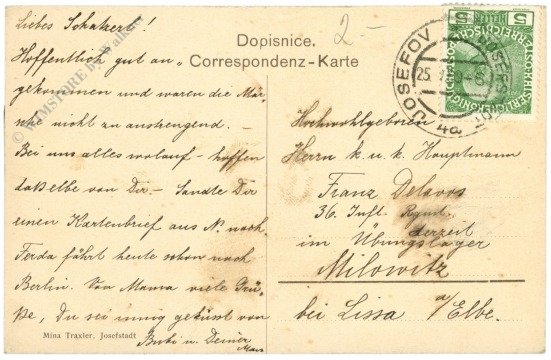 Dopisnice.
Correspondenz-Karte
Liebes Schatzerl!
Hoffentlich gut an=
gekommen und waren die Mär=
sche nicht zu anstrengend.
Bei uns alles wolauf - hoffen
dasselbe von Dir - Sandte Dir
einen Kartenbrief aus N. nach.
Ferda fährt heute schon nach
Berlin. Von Mama viele Grü=
ße, Du sei innig geküsst von
Bubi u. Deiner
Mina Traxler, Josefstadt
2-
Hochwohlgeboren
Herrn k. u. k. Hauptmann
Franz
36. Inft. Regmt.
derzeit
im Übungslager
Milowitz
bei Lissa a/Elbe.
5 HELLER 5
JOSEFOV
JOSEFSTADT
25
4a
© MAMSTORE by Walku